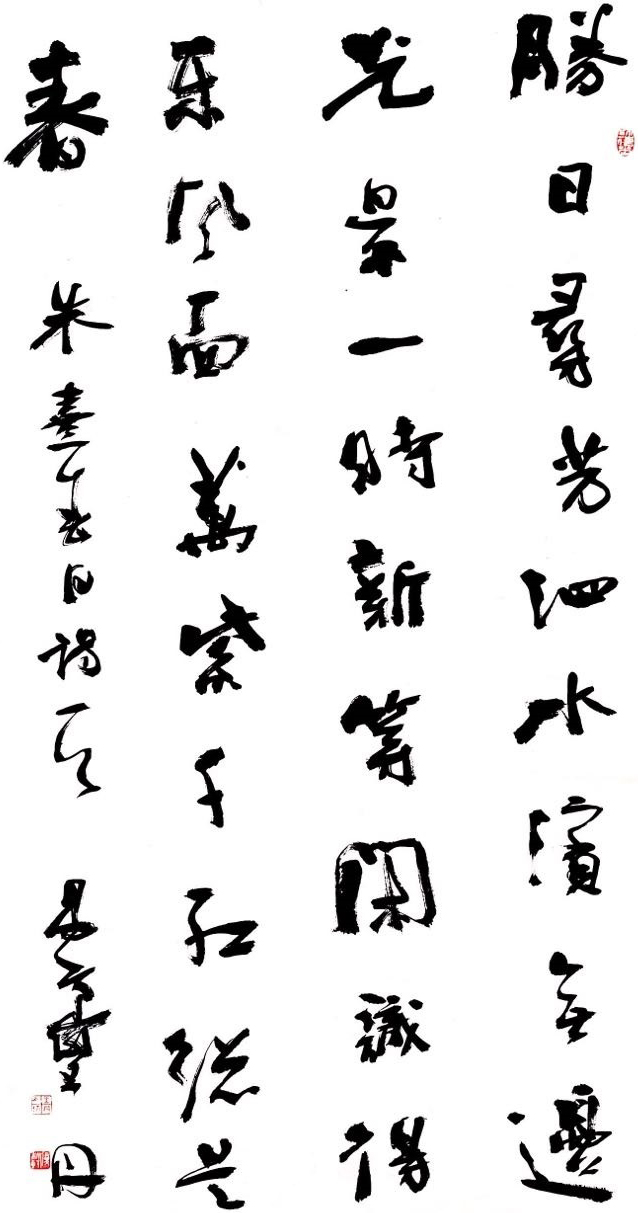 勝日尋芳泗水濱無邊
光景一時新等閑識得
東風面萬紫千紅總是
春 朱熹春日詩一首